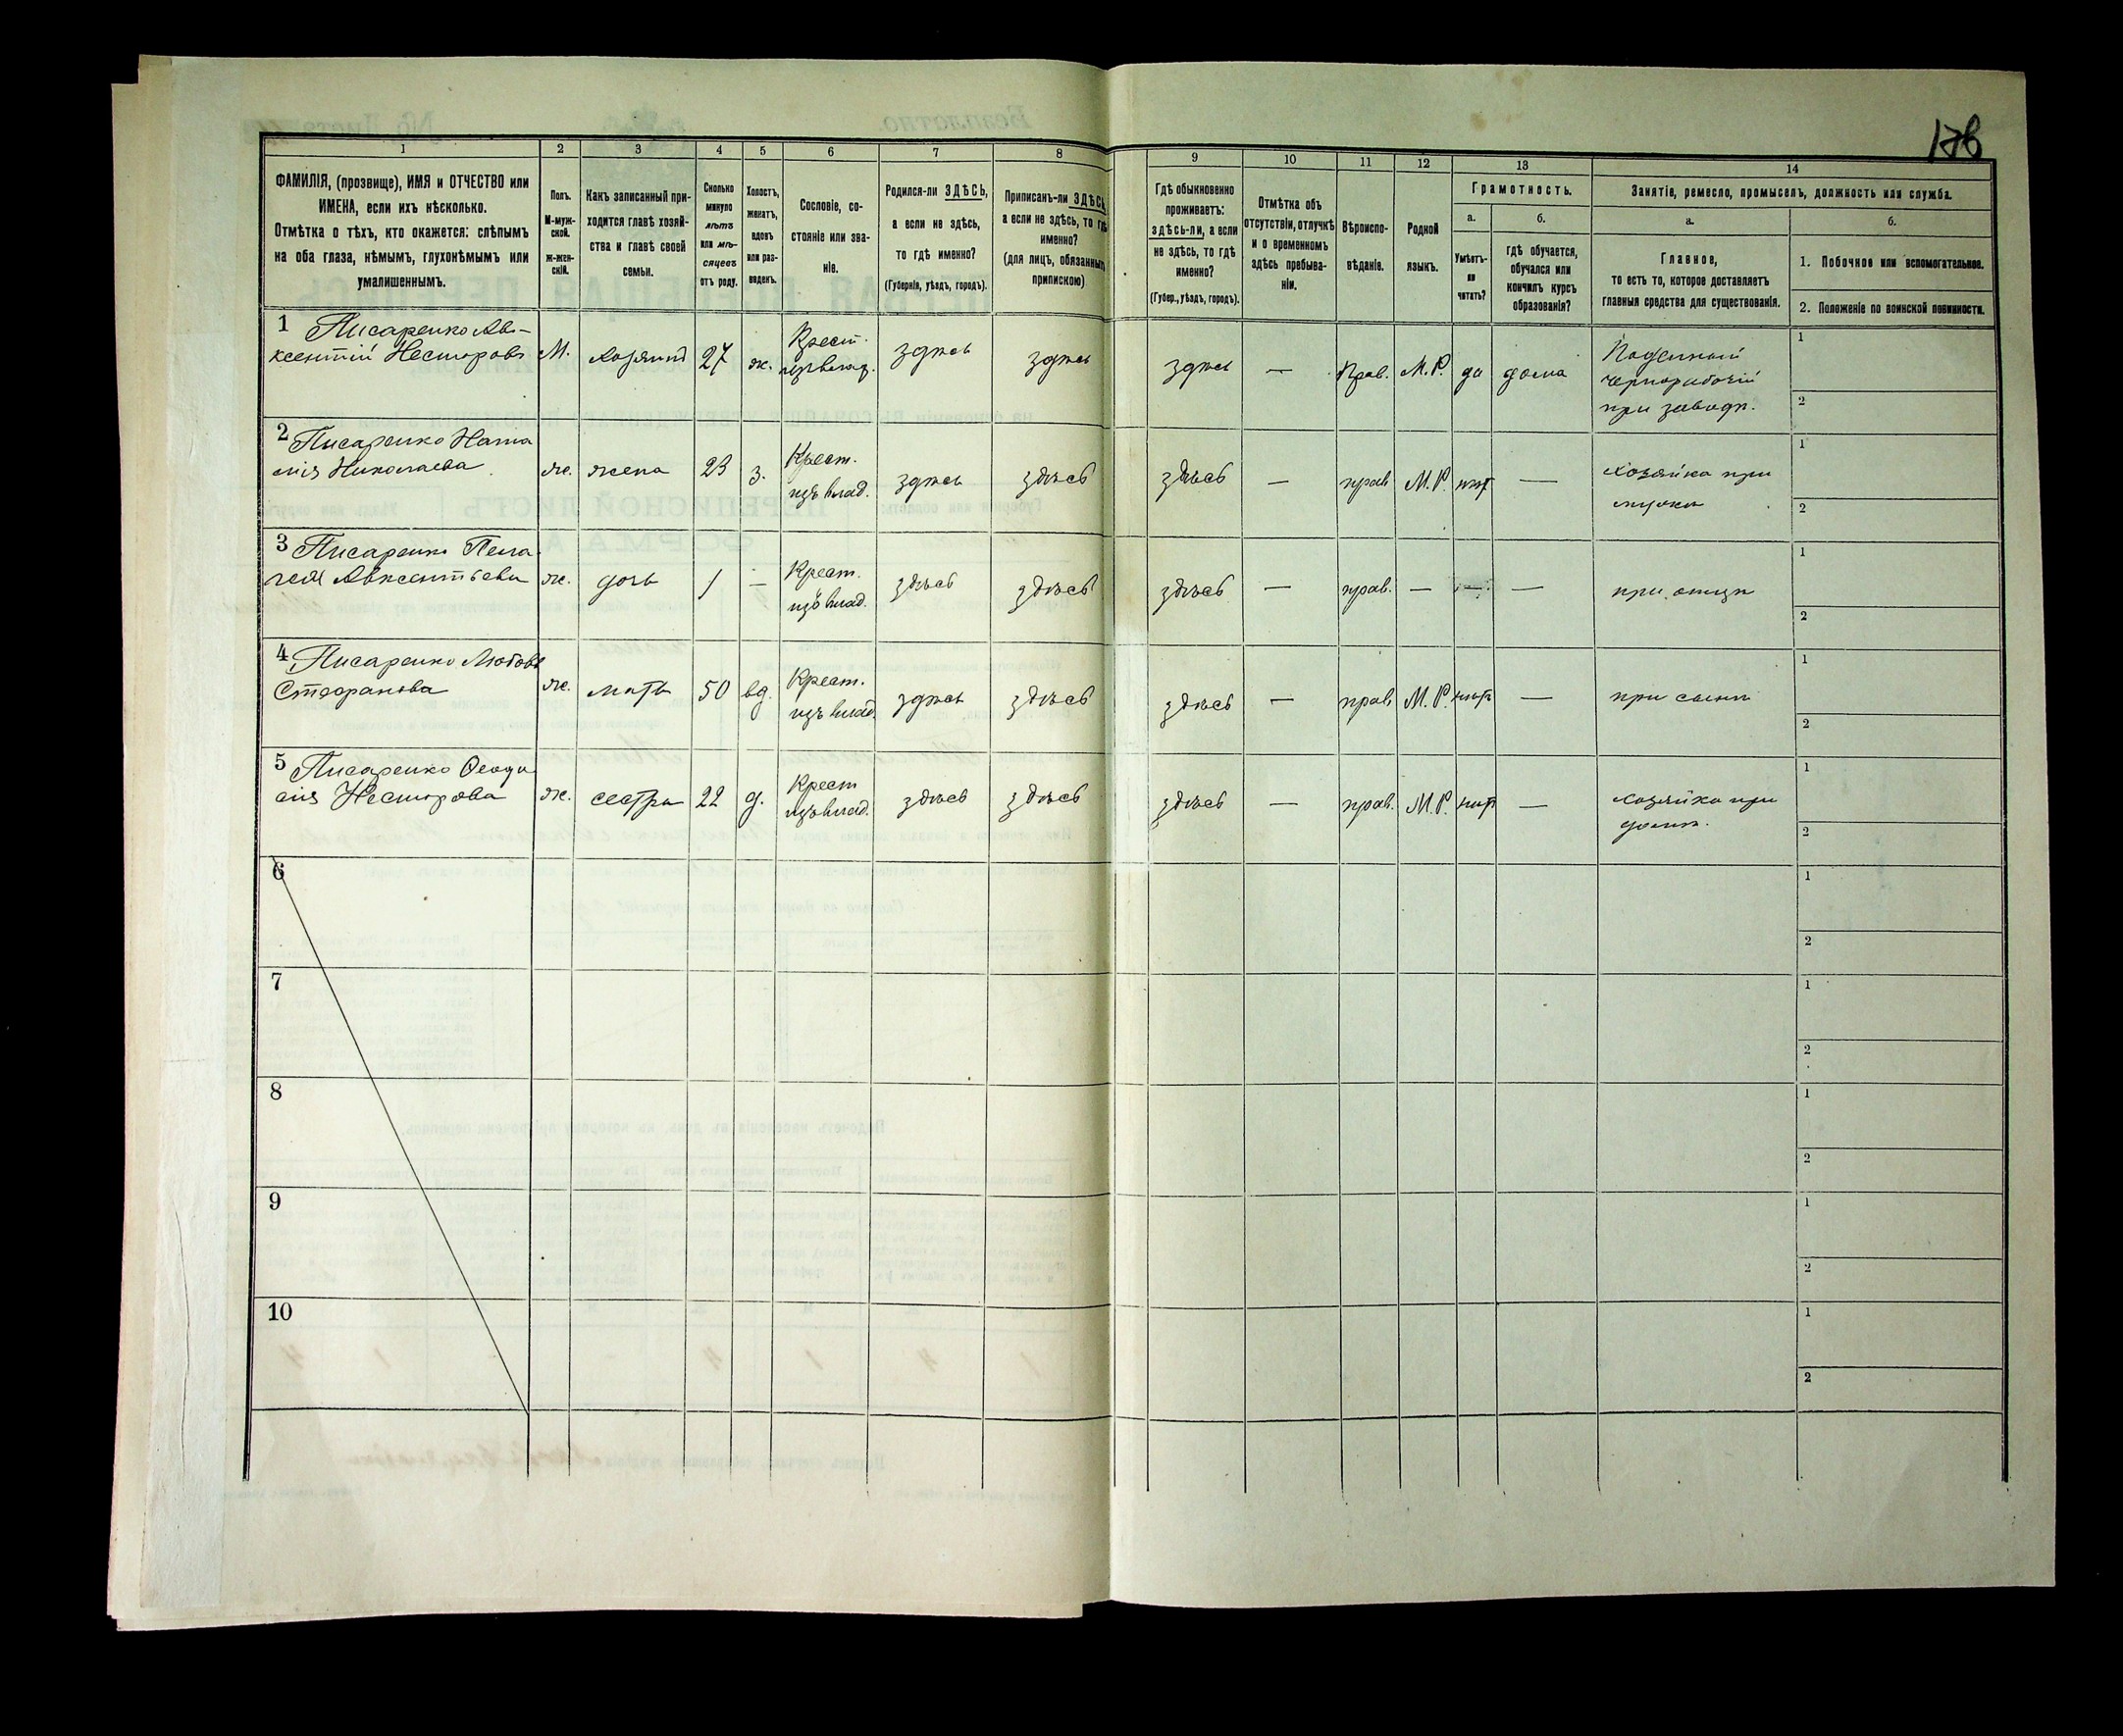 176
1
2
3
4
5
6
7
8
9
10
11
12
13
14
ФАМИЛІЯ, (прозвище), ИМЯ и ОТЧЕСТВО или
ИМЕНА, если ихъ нѣсколько.
Отмѣтка о тѣхъ, кто окажется: слѣпымъ
на оба глаза, нѣмымъ, глухонѣмымъ или
умалишеннымъ.
Полъ.
М-муж-
ской.
ж-жен-
скій.
Какъ записанный при-
ходится главѣ хозяй-
ства и главѣ своей
семьи.
Сколько
минуло
лѣтъ
или мѣ-
сяцевъ
отъ роду.
Холостъ,
женатъ,
вдовъ
или раз-
веденъ.
Сословіе, со-
стояніе или зва-
ніе.
Родился-ли ЗДѢСЬ,
а если не здѣсь,
то гдѣ именно?
(Губернія, уѣздъ, городъ).
Приписанъ-ли ЗДѢСЬ,
а если не здѣсь, то гдѣ
именно?
(для лицъ, обязанныхъ
припискою)
Гдѣ обыкновенно
проживаетъ:
здѣсь-ли, а если
не здѣсь, то гдѣ
именно?
(Губер., уѣздъ, городъ).
Отмѣтка объ
отсутствіи, отлучкѣ
и о временномъ
здѣсь пребыва-
ніи.
Вѣроиспо-
вѣданіе.
Родной
языкъ.
Грамотность.
а.
Умѣетъ-
ли
читать?
б.
гдѣ обучается,
обучался или
кончилъ курсъ
образованія?
Занятіе, ремесло, промыселъ, должность или служба.
а.
Главное,
то есть то, которое доставляетъ
главныя средства для существованія.
б.
1. Побочное или вспомогательное.
2. Положеніе по воинской повинности.
1 Писаренко Ав-
ксентій Несторовъ
М. хозяинъ 27 ж. Крест. изъ влад. здѣсь здѣсь здѣсь — Прав. М.Р. да дома
Поденный
чернорабочій
при заводѣ.
1
2
2 Писаренко Ната
лія Николаева
ж. жена 23 з. Крест. изъ влад. здѣсь здѣсь здѣсь — прав. М.Р. нѣт —
хозяйка при
мужѣ
1
2
3 Писаренко Пела
гея Авксентьева
ж. дочь 1 — Крест. изъ влад. здѣсь здѣсь здѣсь — прав. — — —
при отцѣ
1
2
4 Писаренко Любовь
Стефанова
ж. мать 50 вд. Крест. изъ влад. здѣсь здѣсь здѣсь — прав. М.Р. нѣт —
при сынѣ
1
2
5 Писаренко
Несторова
ж. сестра 22 д. Крест изъ влад. здѣсь здѣсь здѣсь — прав. М.Р. нѣт —
хозяйка при
домѣ.
1
2
6
1
2
7
1
2
8
1
2
9
1
2
10
1
2